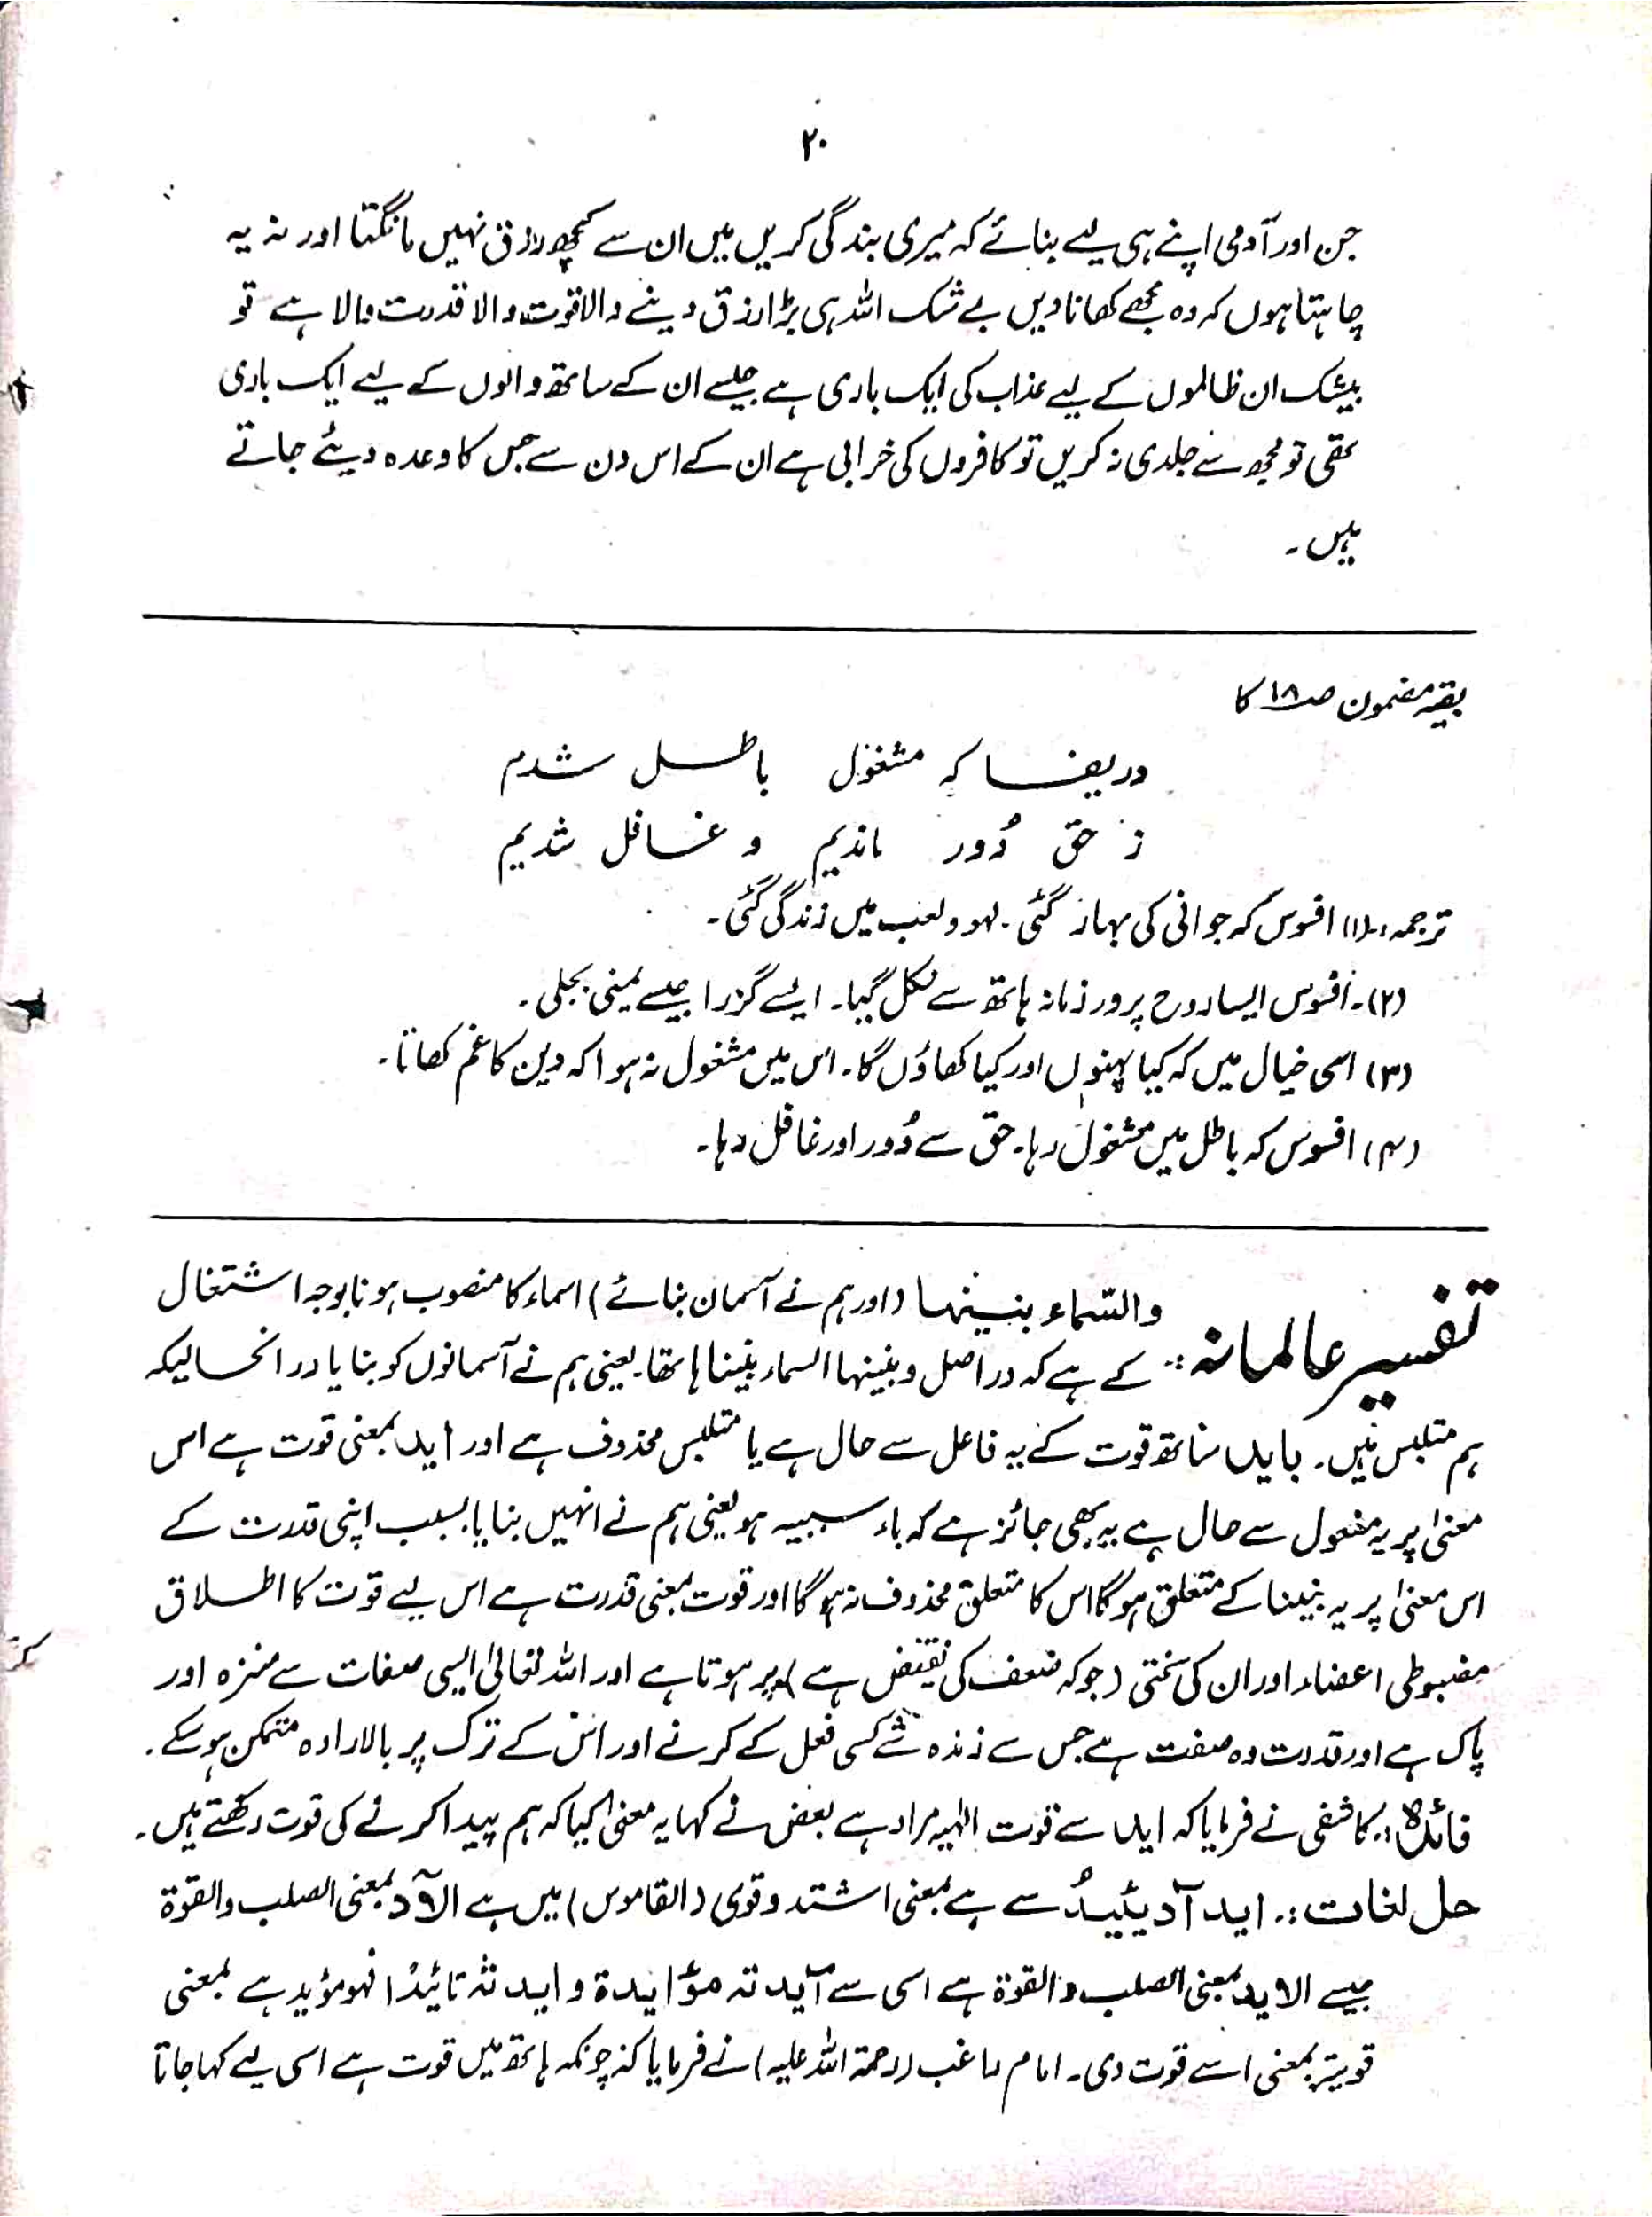 ۲۰
جن اور آدمی اپنے ہی لیے بنائے کہ میری بندگی کریں میں ان سے کچھ رزق نہیں مانگتا اور نہ یہ
چاہتا ہوں کہ وہ مجھے کھانا دیں بے شک اللہ ہی بڑا رزق دینے والا قوت والا قدرت والا ہے تو
بیشک ان ظالموں کے لیے عذاب کی ایک باری ہے جیسے ان کے ساتھ والوں کے لیے ایک باری
تھی تو مجھ سے جلدی نہ کریں تو کافروں کی خرابی ہے ان کے اس دن سے جس کا وعدہ دیئے جاتے
ہیں۔
بقیہ مضمون صـ۱۸ کا
دریغا کہ مشغول باطل شدم
ز حق دُور ماندیم و غافل شدیم
ترجمہ:۔(۱) افسوس کہ جوانی کی بہار گئی۔ لہو و لعب میں زندگی گئی۔
(۲)۔ افسوس ایسا روح پرور زمانہ ہاتھ سے نکل گیا۔ ایسے گزرا جیسے یمنی بجلی۔
(۳) اسی خیال میں کہ کیا پہنوں اور کیا کھاؤں گا۔ اس میں مشغول نہ ہوا کہ دین کا غم کھاتا۔
(۴) افسوس کہ باطل میں مشغول رہا۔ حق سے دُور اور غافل رہا۔
تفسیر عالمانہ:۔ والسّماء بنینہا (اور ہم نے آسمان بنائے) اسماء کا منصوب ہونا بوجہ اشتغال
کے ہے کہ دراصل و بنینہا السماء بنیناہا تھا۔ یعنی ہم نے آسمانوں کو بنایا در انحالیکہ
ہم متلبس ہیں۔ باید ساتھ قوت کے یہ فاعل سے حال ہے یا متلبس محذوف ہے اور اید بمعنی قوت ہے اس
معنیٰ پر یہ مفعول سے حال ہے یہ بھی جائز ہے کہ باء سببیہ ہو یعنی ہم نے انہیں بنایا بسبب اپنی قدرت کے
اس معنیٰ پر یہ بنینا کے متعلق ہو گا اس کا متعلق محذوف نہ ہو گا اور قوت بمعنی قدرت ہے اس لیے قوت کا اطلاق
مضبوطی اعضاء اور ان کی سختی (جو کہ ضعف کی نقیض ہے) پر ہوتا ہے اور اللہ تعالیٰ ایسی صفات سے منزہ اور
پاک ہے اور قدرت وہ صفت ہے جس سے زندہ شے کسی فعل کے کرنے اور اس کے ترک پر بالارادہ متمکن ہو سکے۔
فائدہ:۔ کاشفی نے فرمایا کہ اید سے قوت الٰہیہ مراد ہے بعض نے کہا یہ معنیٰ کیا کہ ہم پیدا کرنے کی قوت رکھتے ہیں۔
حل لغات:۔ اید آد یئیدُ سے ہے بمعنی اشتد و قوی (القاموس) میں ہے الآد بمعنی الصلب والقوۃ
جیسے الاید بمعنی الصلب والقوۃ ہے اسی سے آیدتہ مؤایدۃ و ایدتہ تائیدًا فہو مؤید ہے بمعنی
قویتہ بمعنی اسے قوت دی۔ امام راغب (رحمۃ اللہ علیہ) نے فرمایا کہ چونکہ ہاتھ میں قوت ہے اسی لیے کہا جاتا